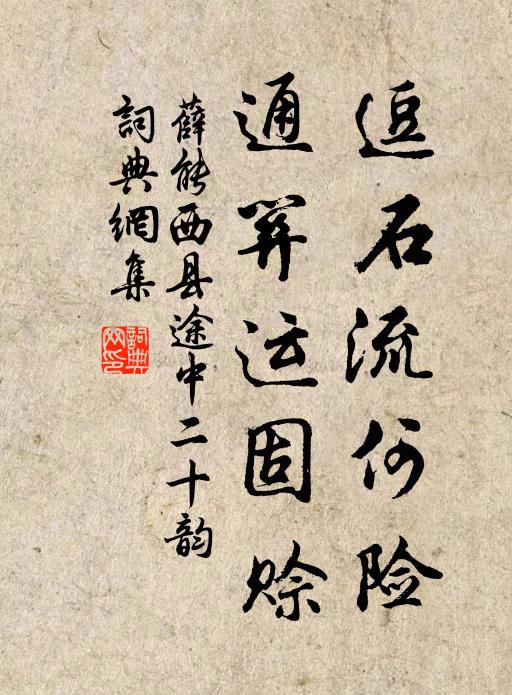 逗石流何险
通关运固赊
薛能西县途中二十韵
詞典網集
詞典
网印